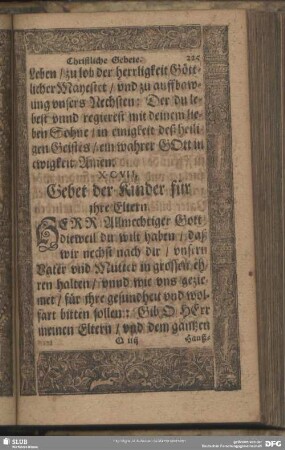 Christliche Gebete.
Leben / zu lob der herrligkeit Gött-
licher Mayestet / vnd zu auffbaw-
ung vnsers Nechsten: Der du le-
best vnnd regierest mit deinem lie-
ben Sohne / in einigkeit deß heili-
gen Geistes / ein wahrer GOtt in
ewigkeit Amen.
XCVII.
Gebet der Kinder für
ihre Eltern
HERR Allmechtiger Gott
dieweil du wilt haben / daß
wir nechst nach dir / vnsern
Vater vnd Mutter in grossen eh-
ren halten / vnnd wie vns gezie-
met / für ihre gesundheit vnd wol-
fart bitten sollen: Gib O HErr
meinen Eltern / vnd dem gantzen
Hauß-
SLUB
DFG